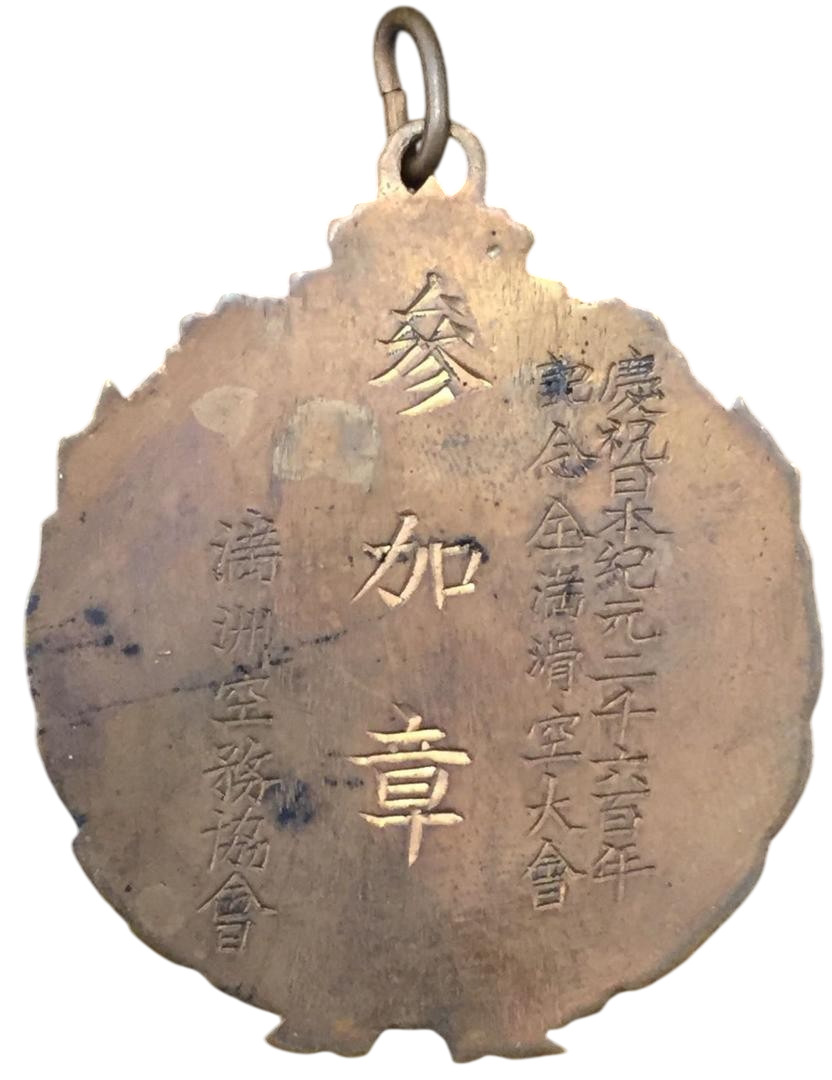 慶祝日本紀元二千六百年
記念全満滑空大會
參加章
満洲空務協會